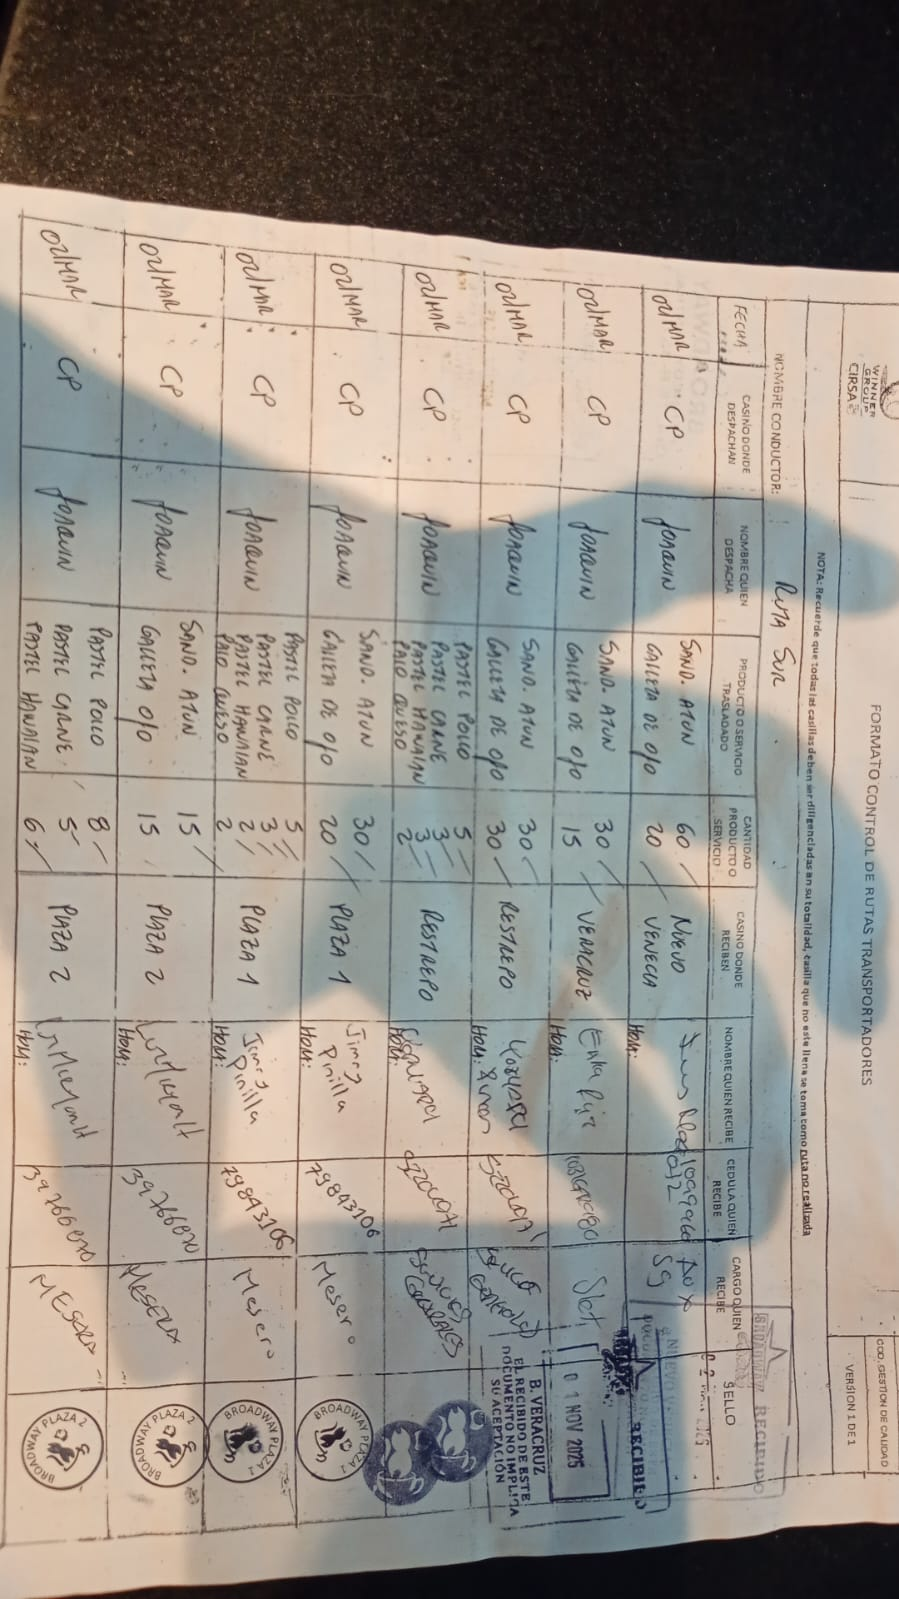 WINNER
GROUP
CIRSA
FORMATO CONTROL DE RUTAS TRANSPORTADORES
COD. GESTION DE CALIDAD
VERSION 1 DE 1
NOTA: Recuerde que todas las casillas deben ser diligenciadas en su totalidad, casilla que no este llena se toma como ruta no realizada
NOMBRE CONDUCTOR: RUTA SUR
FECHA
CASINO DONDE DESPACHAN
NOMBRE QUIEN DESPACHA
PRODUCTO O SERVICIO TRASLADADO
CANTIDAD PRODUCTO O SERVICIO
CASINO DONDE RECIBEN
NOMBRE QUIEN RECIBE
CEDULA QUIEN RECIBE
CARGO QUIEN RECIBE
SELLO
02/MAR CP JOAQUIN SAND. ATUN 60 NUEVO
GALLETA DE 0/0 20 VENECIA
HORA:
BROADWAY RECIBIDO
02/MAR CP JOAQUIN SAND. ATUN 30 VERACRUZ
GALLETA DE 0/0 15
HORA:
RECIBIDO
01 NOV 2025
B. VERACRUZ
EL RECIBIDO DE ESTE
DOCUMENTO NO IMPLICA
SU ACEPTACIÓN
02/MAR CP JOAQUIN SAND. ATUN 30 RESTREPO
GALLETA DE 0/0 30
HORA:
02/MAR CP JOAQUIN PASTEL POLLO 5 RESTREPO
PASTEL CARNE 3
PASTEL HAWAIAN 3
PALO QUESO 2
HORA: SERVICIOS GENERALES
02/MAR CP JOAQUIN SAND. ATUN 30 PLAZA 1 Jimmy Pinilla 79843106 Mesero
GALLETA DE 0/0 20
HORA:
BROADWAY PLAZA 1
02/MAR CP JOAQUIN PASTEL POLLO 5 PLAZA 1 Jimmy Pinilla 79843106 Mesero
PASTEL CARNE 3
PASTEL HAWAIAN 2
PALO QUESO 2
HORA:
BROADWAY PLAZA 1
02/MAR CP JOAQUIN SAND. ATUN 15 PLAZA 2 39766870 MESERA
GALLETA 0/0 15
HORA:
BROADWAY PLAZA 2
02/MAR CP JOAQUIN PASTEL POLLO 8 PLAZA 2 39766870 MESERA
PASTEL CARNE 5
PASTEL HAWAIAN 6
HORA:
BROADWAY PLAZA 2